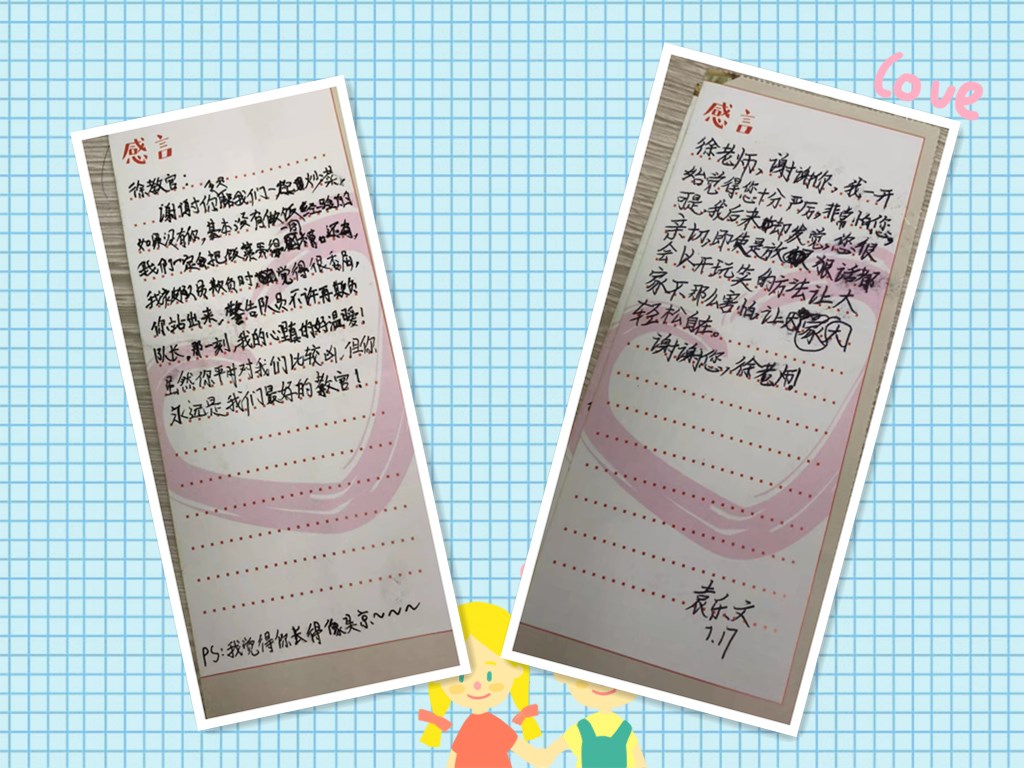 感言
徐教官：
谢谢你跟我们一起炒菜
如果没有你，基本没有做饭经验的
我们一定会把饭菜弄得。还有，
我被队员欺负时觉得很委屈，
你站出来，警告队员不许再欺负
队长。那一刻，我的心真的好温暖！
虽然你平时对我们比较凶，但你
永远是我们最好的教官！
PS：我觉得你长得像吴京～～～
Love
感言
徐老师，谢谢你，我一开
始觉得您十分严厉，非常怕您，
可是，我后来却发觉，您很
亲切，即使是放狠话都
会以开玩笑的方法让大
家不那么害怕，让大家
轻松自在。
谢谢您，徐老师！
袁乐文
1.17